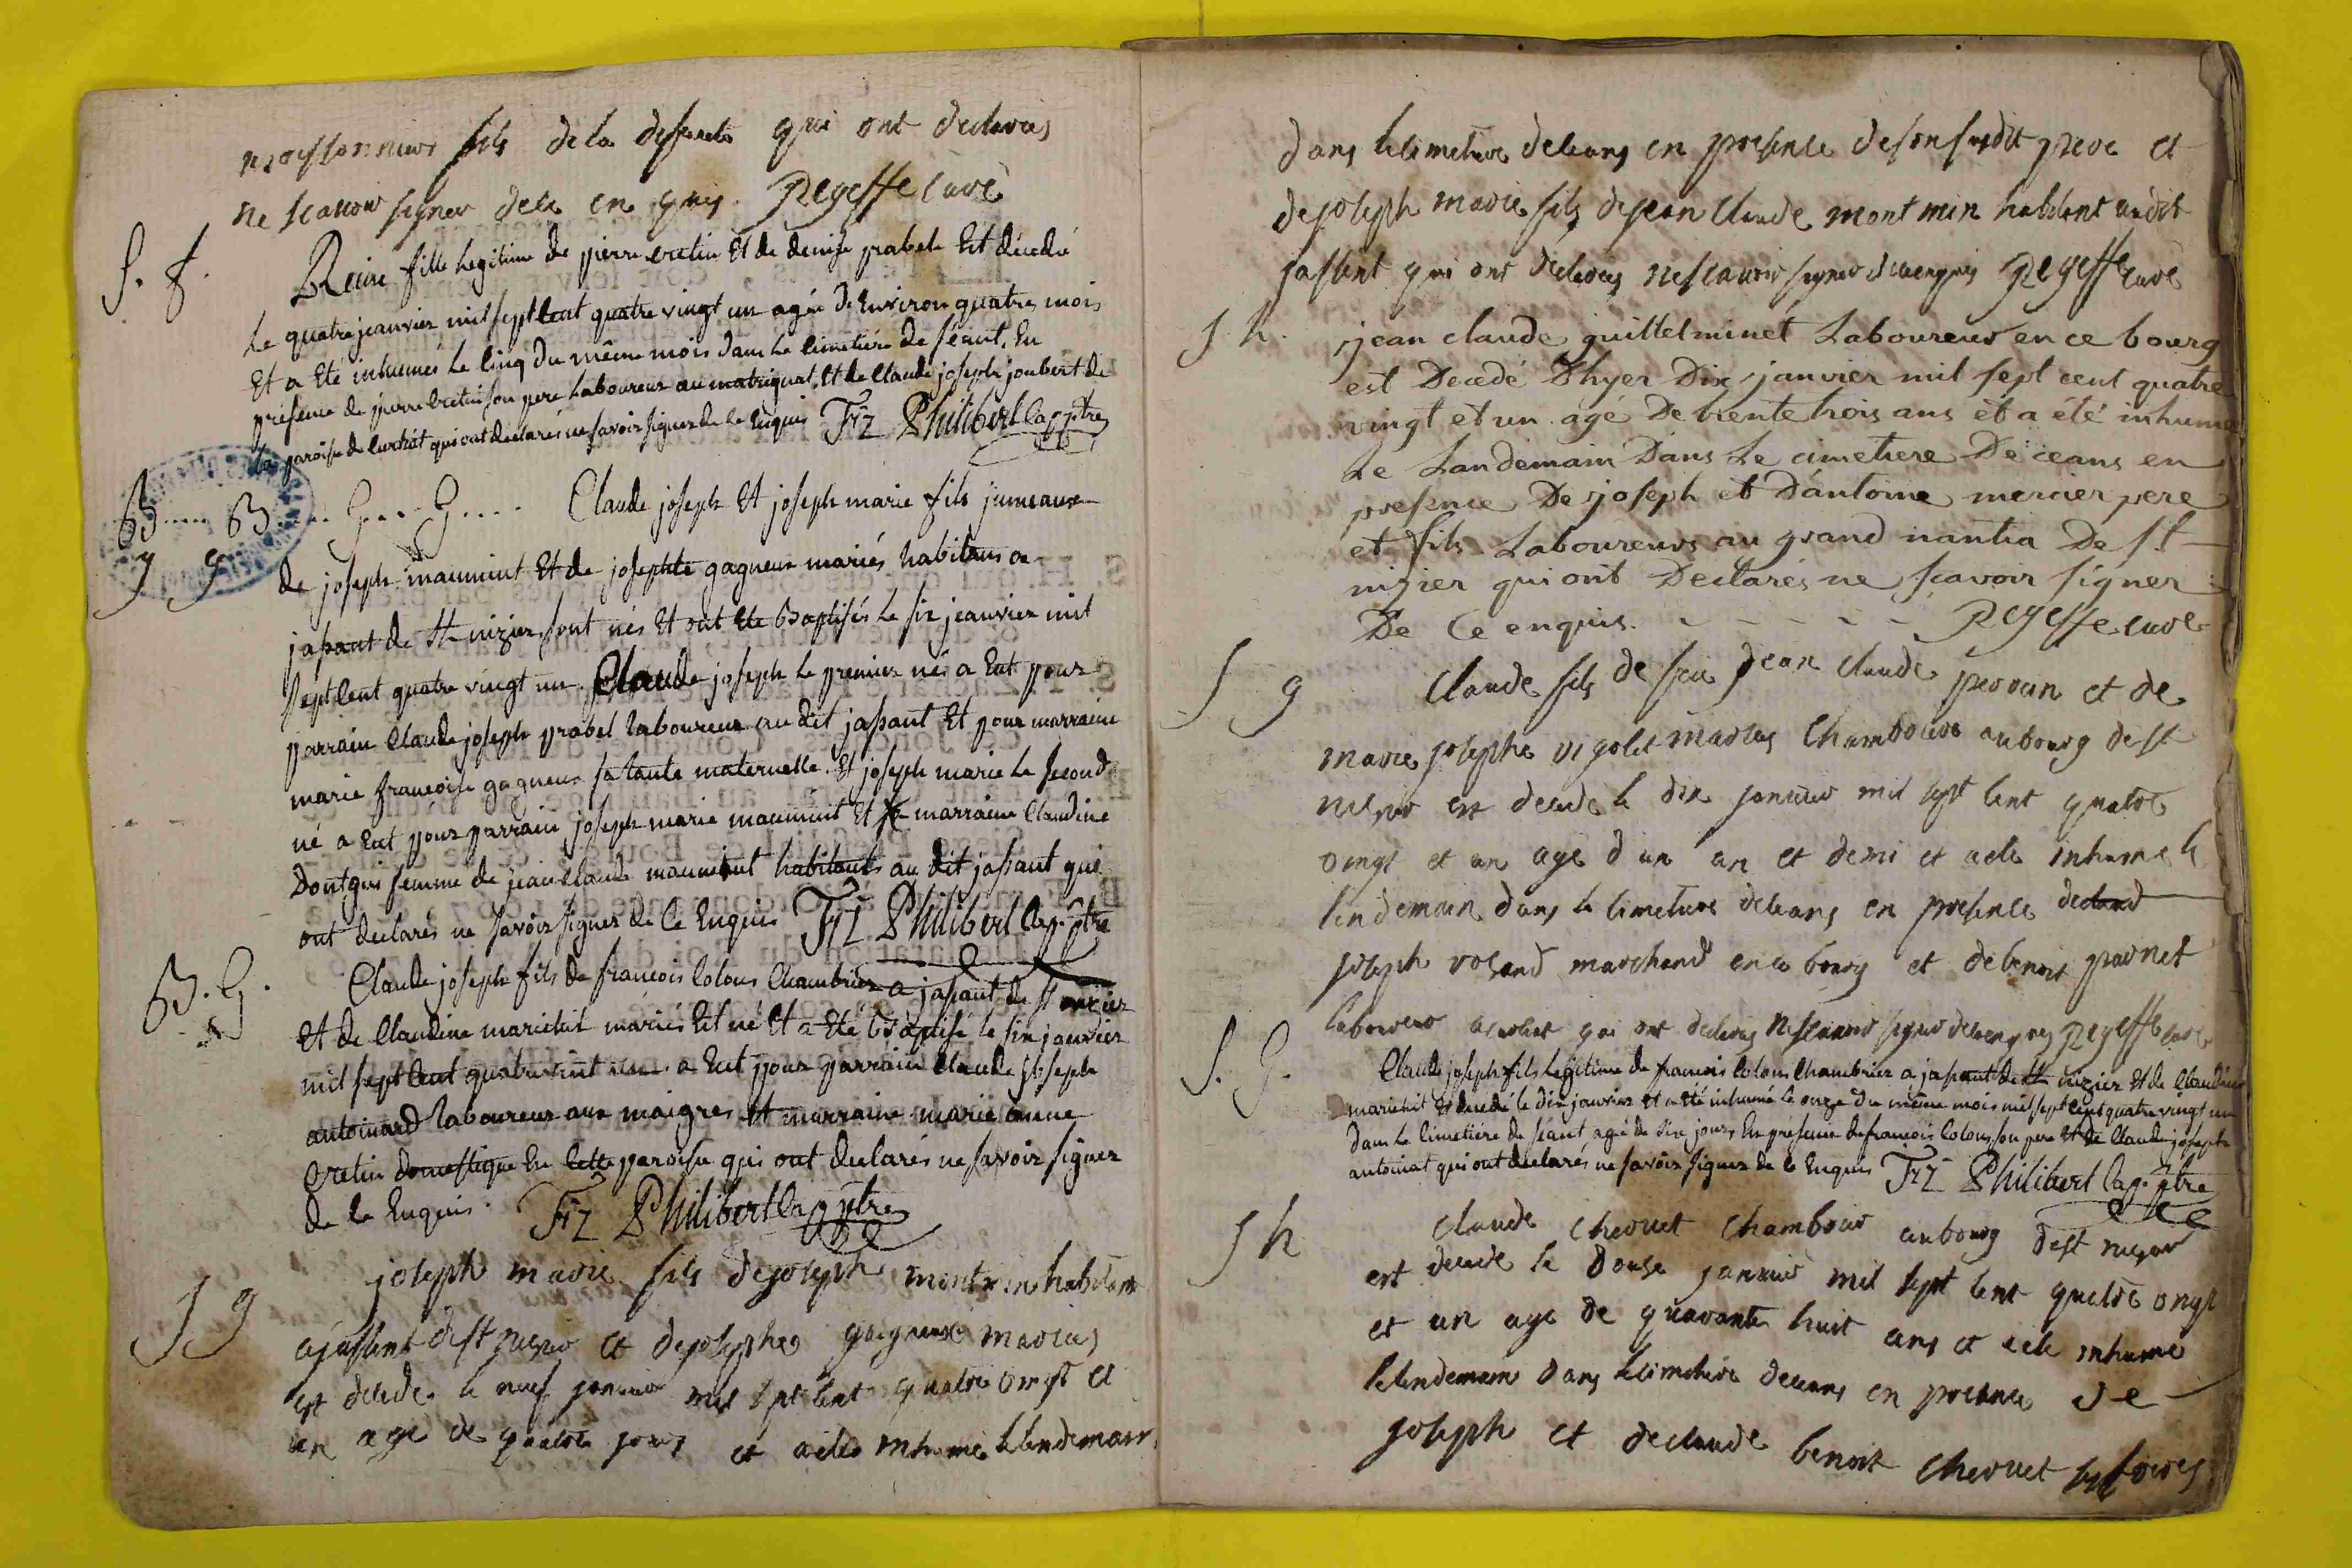 fils de la defuncte qui ont declarés
ne scavoir signer dece enquis. Regeffe curé
S. f. Reine fille legitime de pierre cretin Et de denise prabel Est décedée
Le quatre jeanvier mil sept cent quatre vingt un agée d'Environ quatre mois
Et a Eté inhumée Le cinq du même mois dans Le cimetière de séant, En
présence de pierre cretin son pere Laboureur au matriquat, Et de Claude joseph joubert de
la paroisse de curtiat qui ont declarés ne savoir signer de ce Enquis Frz Philibert Cap. ptre
B.... B.... G... G.... Claude joseph Et joseph marie fils jumeaux
g g de joseph maumint Et de josephte gagneur mariés habitans a
jasant de St nizier, sont nés Et ont Eté Baptisés le six jeanvier mil
sept cent quatre vingt un. Claude joseph Le premier né a Eut pour
parrain Claude joseph prabel laboureur au dit jasant Et pour marraine
marie francoise gagneur sa tante maternelle. Et joseph marie Le second
né a Eut pour parrain joseph marie maumint Et marraine Claudine
femme de jean Claude maumint habitants au dit jasant qui
ont declarés ne savoir signer de ce Enquis Frz Philibert Cap. ptre
B. G. Claude joseph fils de francois colons Chambrier a jasant de st nizier
Et de Claudine marichit mariés Est né Et a Eté Baptisé le six janvier
mil sept cent quatre vint un a Eut pour parrain Claude joseph
antoinard laboureur aux maigres Et marraine marie anne
Cretin domestique En cette paroisse qui ont declarés ne savoir signer
de ce Enquis. Frz Philibert Cap ptre
S g joseph marie fils de joseph montmin habitant
a jassent de st nizier et de josephe gagneux mariés
est decede le neuf janvier mil sept cent quatre vingt et
un age de quatre jours et a ete inhumé le lendemain
dans le cimetiere deceans en presence de son susdit pere et
de joseph marie fils de jean Claude montmin habitant audit
jassent qui ont declarés ne scavoir signer dece enquis Regeffe curé
S h. jean claude guillelminet Laboureur en ce bourg
est Decedé D'hyer Dix janvier mil sept cent quatre
vingt et un agé De trente trois ans et a été inhumé
Le Landemain Dans Le cimetiere De ceans en
presence De joseph et D'antoine mercier pere
et fils Laboureurs au grand nantia De st
nizier qui ont Declarés ne scavoir signer
De Ce enquis. - - - - - Regeffe curé
S g Claude fils de feu jean Claude perrin et de
marie josephe vigolet mariés Chambriers au bourg de st
nizier est decede le dix janvier mil sept cent quatre
vingt et un age d'un an et demi et a ete inhume le
lendemain dans le cimetiere deceans en presence declaud
joseph roland marchand en ce bourg et de benoit
laboureur a curtiat qui ont declarés ne scavoir signer dece enquis Regeffe curé
S. G. Claude joseph fils Legitime de francois colons Chambrier a jasant de st nizier Et de Claudine
marichit Est decedé le dix janvier Et a Eté inhumé le onze du même mois mil sept cent quatre vingt un
dans Le cimetière de séant, agé de six jours En présence de francois colons son pere Et de Claude joseph
antoinat qui ont declarés ne savoir signer de ce Enquis Frz Philibert Cap. ptre
S h Claude chevret Chambrier au bourg de st nizier
est decede le douse janvier mil sept cent quatre vingt
et un age de quarante huit ans et a ete inhumé
le lendemain dans le cimetiere deceans en presence de
joseph et de claude benoit chevret ses freres